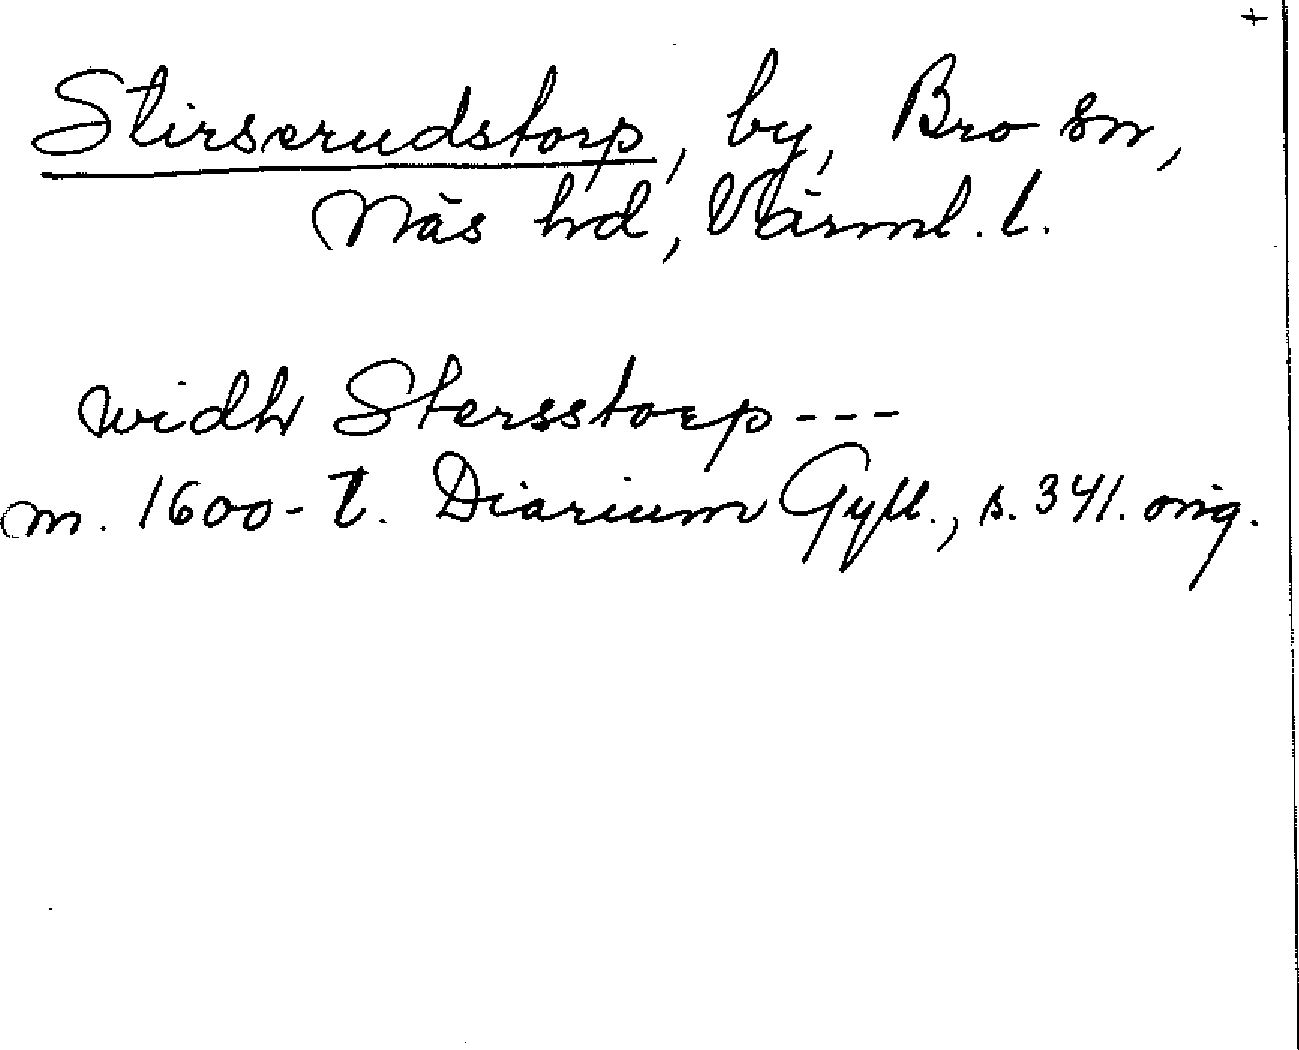 +
Stirserudstorp, by, Bro sn,
Näs hd, Värml. l.
widh Stersstorp---
m. 1600-t. Diarium Gyll., s. 341. orig.